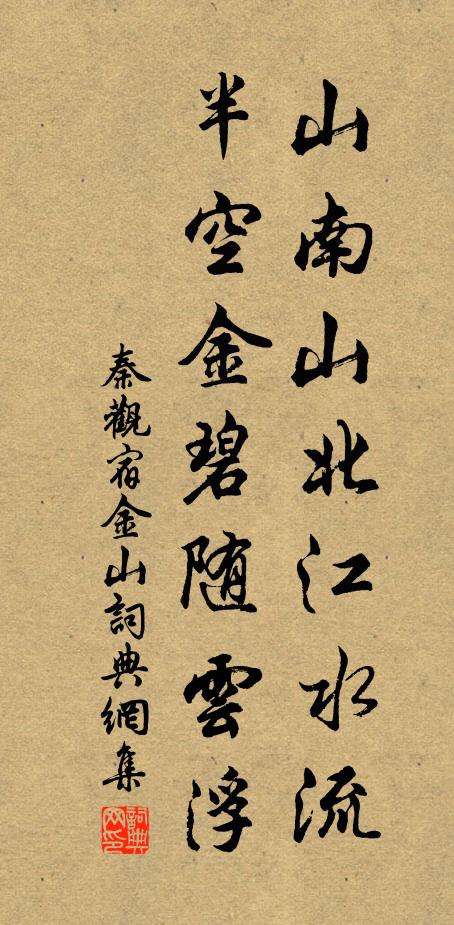 山南山北江水流
半空金碧随雲浮
秦觀宿金山詞典網集
詞典网印